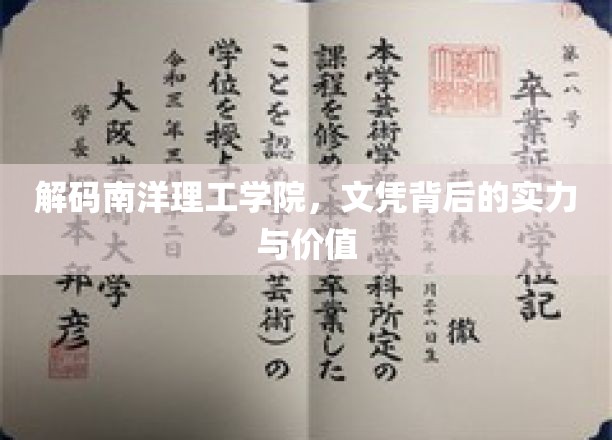 解码南洋理工学院，文凭背后的实力
与价值
第一八号
卒業証 学位記
森 徹
月二十八日生
本学芸術学 楽学科所定の
課程を修めて本 を卒業した
ことを認め (芸術)の
学位を授与する
令和三年三 二日
大阪芸術大学
学長 本邦彦